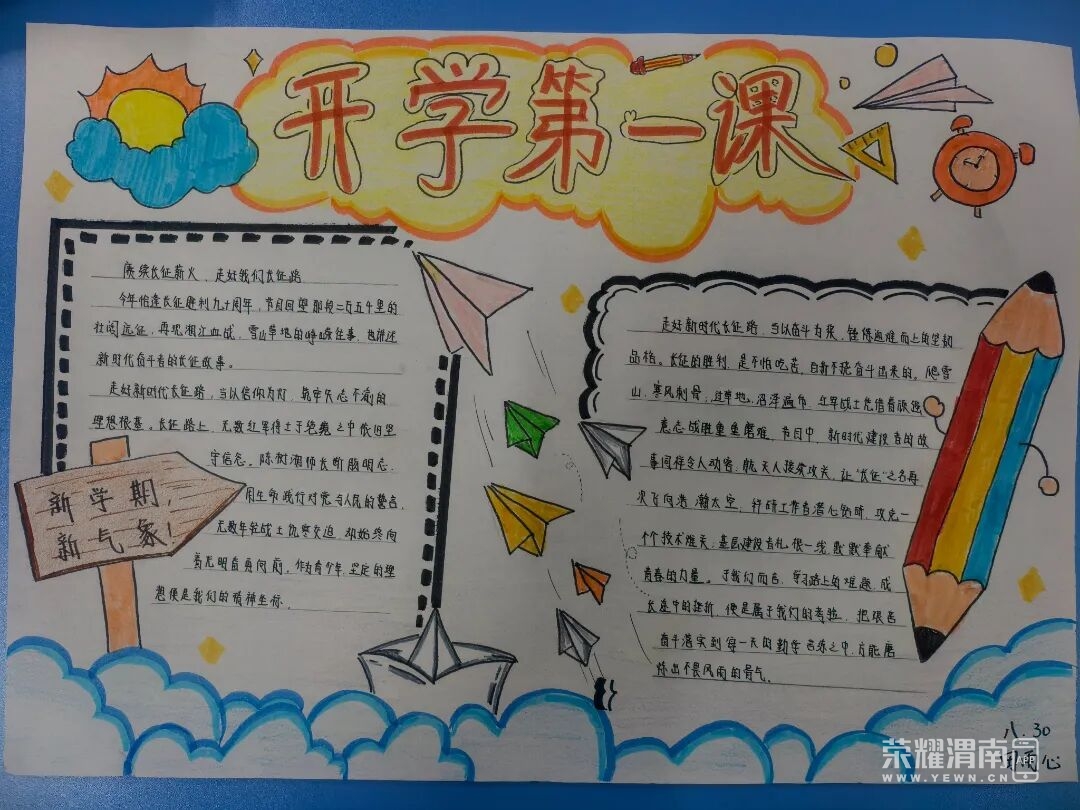 开学第一课
赓续长征薪火、走好我们长征路
今年恰逢长征胜利九十周年,节目回望那段二万五千里的
壮阔远征,再现湘江血战、雪山草地的峥嵘往事,也讲述
新时代奋斗者的长征故事。
走好新时代长征路,当以信仰为灯,筑牢矢志不渝的
理想根基。长征路上,无数红军将士于绝境之中依旧坚
守信念。陈树湘师长断肠明志,
用生命践行对党与人民的誓言,
无数年轻战士饥寒交迫,却始终向
着光明奋勇向前。作为青少年,坚定的理
想便是我们的精神坐标。
新学期,
新气象!
走好新时代长征路,当以奋斗为桨,锤炼迎难而上的坚韧
品格。长征的胜利,是不怕吃苦、百折不挠奋斗出来的。爬雪
山,寒风刺骨;过草地,沼泽遍布,红军战士凭借着顽强
意志战胜重重磨难。节目中,新时代建设者的故
事同样令人动容:航天人接续攻关,让“长征”之名再
次飞向浩瀚太空,科研工作者潜心钻研,攻克一
个个技术难关,基层建设者扎根一线,默默奉献
青春的力量。于我们而言,学习路上的难题、成
长途中的挫折,便是属于我们的考验,把艰苦
奋斗落实到每一天的勤学苦练之中,方能磨
炼出不畏风雨的骨气。
八.30
心
荣耀渭南APP
WWW.YEWN.CN